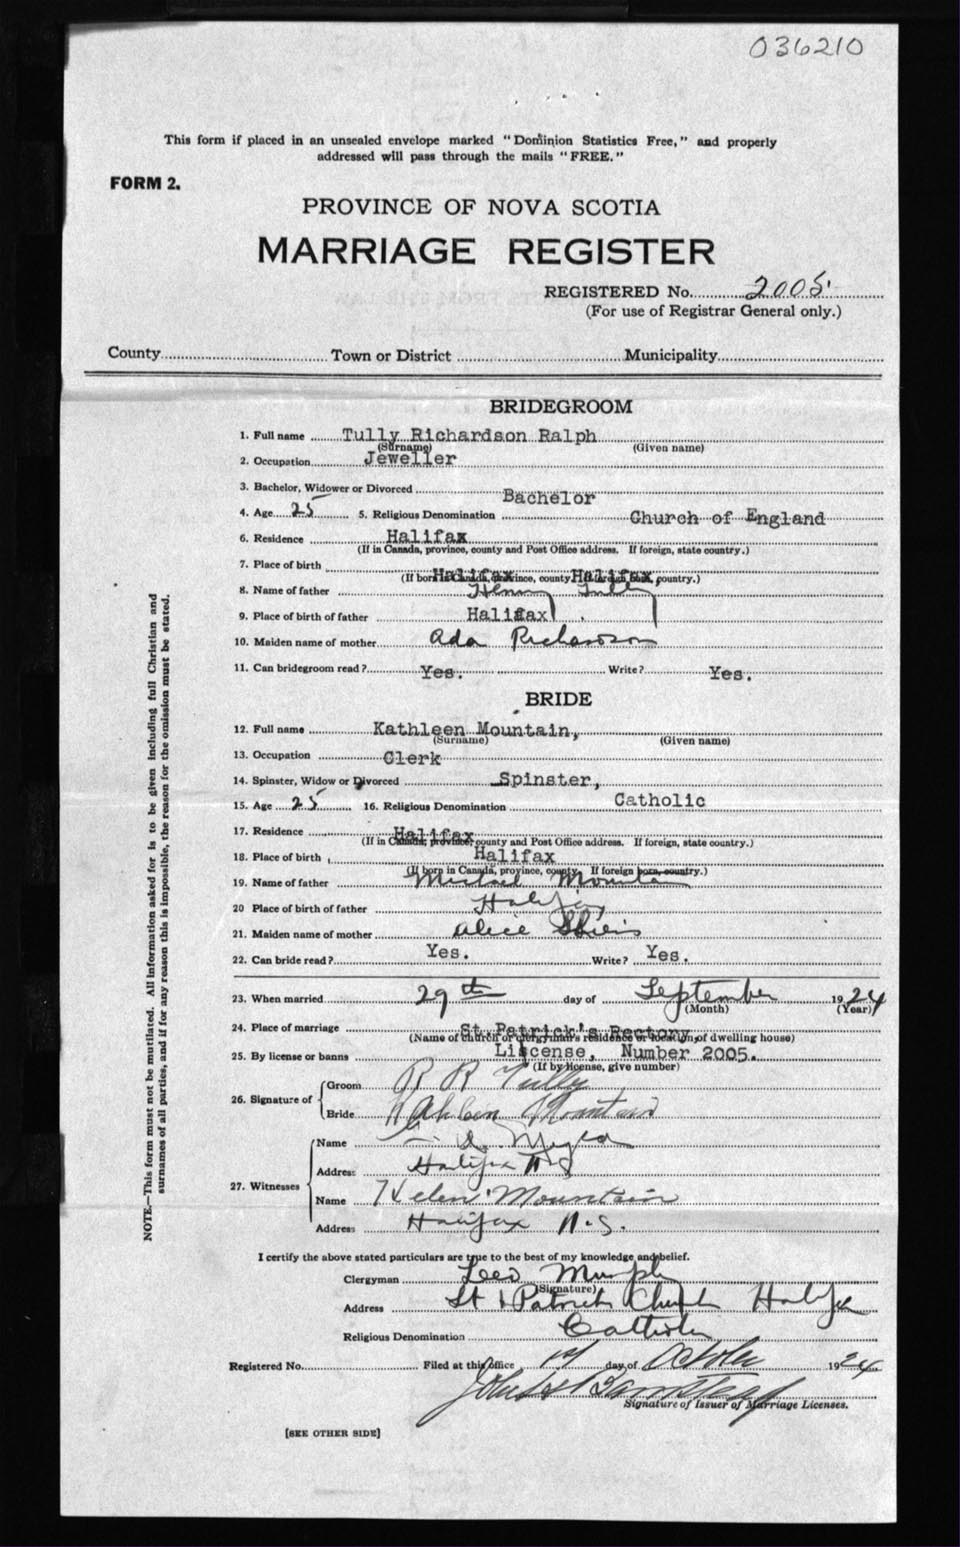 036210
This form if placed in an unsealed envelope marked "Dominion Statistics Free," and properly
addressed will pass through the mails "FREE."
FORM 2.
PROVINCE OF NOVA SCOTIA
MARRIAGE REGISTER
REGISTERED No. 2005
(For use of Registrar General only.)
County Town or District Municipality
BRIDEGROOM
1. Full name Tully Richardson Ralph
(Surname) (Given name)
2. Occupation Jeweller
3. Bachelor, Widower or Divorced Bachelor
4. Age 25 5. Religious Denomination Church of England
6. Residence Halifax
(If in Canada, province, county and Post Office address. If foreign, state country.)
7. Place of birth Halifax Halifax
(If born in Canada, province, county. If foreign born, country.)
8. Name of father Henry Tully
9. Place of birth of father Halifax
10. Maiden name of mother Ada Richardson
11. Can bridegroom read? Yes. Write? Yes.
BRIDE
12. Full name Kathleen Mountain,
(Surname) (Given name)
13. Occupation Clerk
14. Spinster, Widow or Divorced Spinster,
15. Age 25 16. Religious Denomination Catholic
17. Residence Halifax
(If in Canada, province, county and Post Office address. If foreign, state country.)
18. Place of birth Halifax
(If born in Canada, province, county. If foreign born, country.)
19. Name of father Michael Mountain
20 Place of birth of father Halifax
21. Maiden name of mother Alice
22. Can bride read? Yes. Write? Yes.
23. When married 29th day of September 1924
(Month) (Year)
24. Place of marriage St Patrick's Rectory,
(Name of church or clergyman's residence or location of dwelling house)
25. By license or banns Liscense, Number 2005.
(If by license, give number)
26. Signature of Groom R R Tully
Bride Kathleen Mountain
27. Witnesses Name
Address Halifax N S
Name Helen Mountain
Address Halifax N.S.
I certify the above stated particulars are true to the best of my knowledge and belief.
Clergyman Leo Murphy
(Signature)
Address St Patrick Church Halifax
Religious Denomination Catholic
Registered No. Filed at this office 1st day of October 1924
John H Barnstead
Signature of Issuer of Marriage Licenses.
[SEE OTHER SIDE]
NOTE.—This form must not be mutilated. All information asked for is to be given including full Christian and
surnames of all parties, and if for any reason this is impossible, the reason for the omission must be stated.